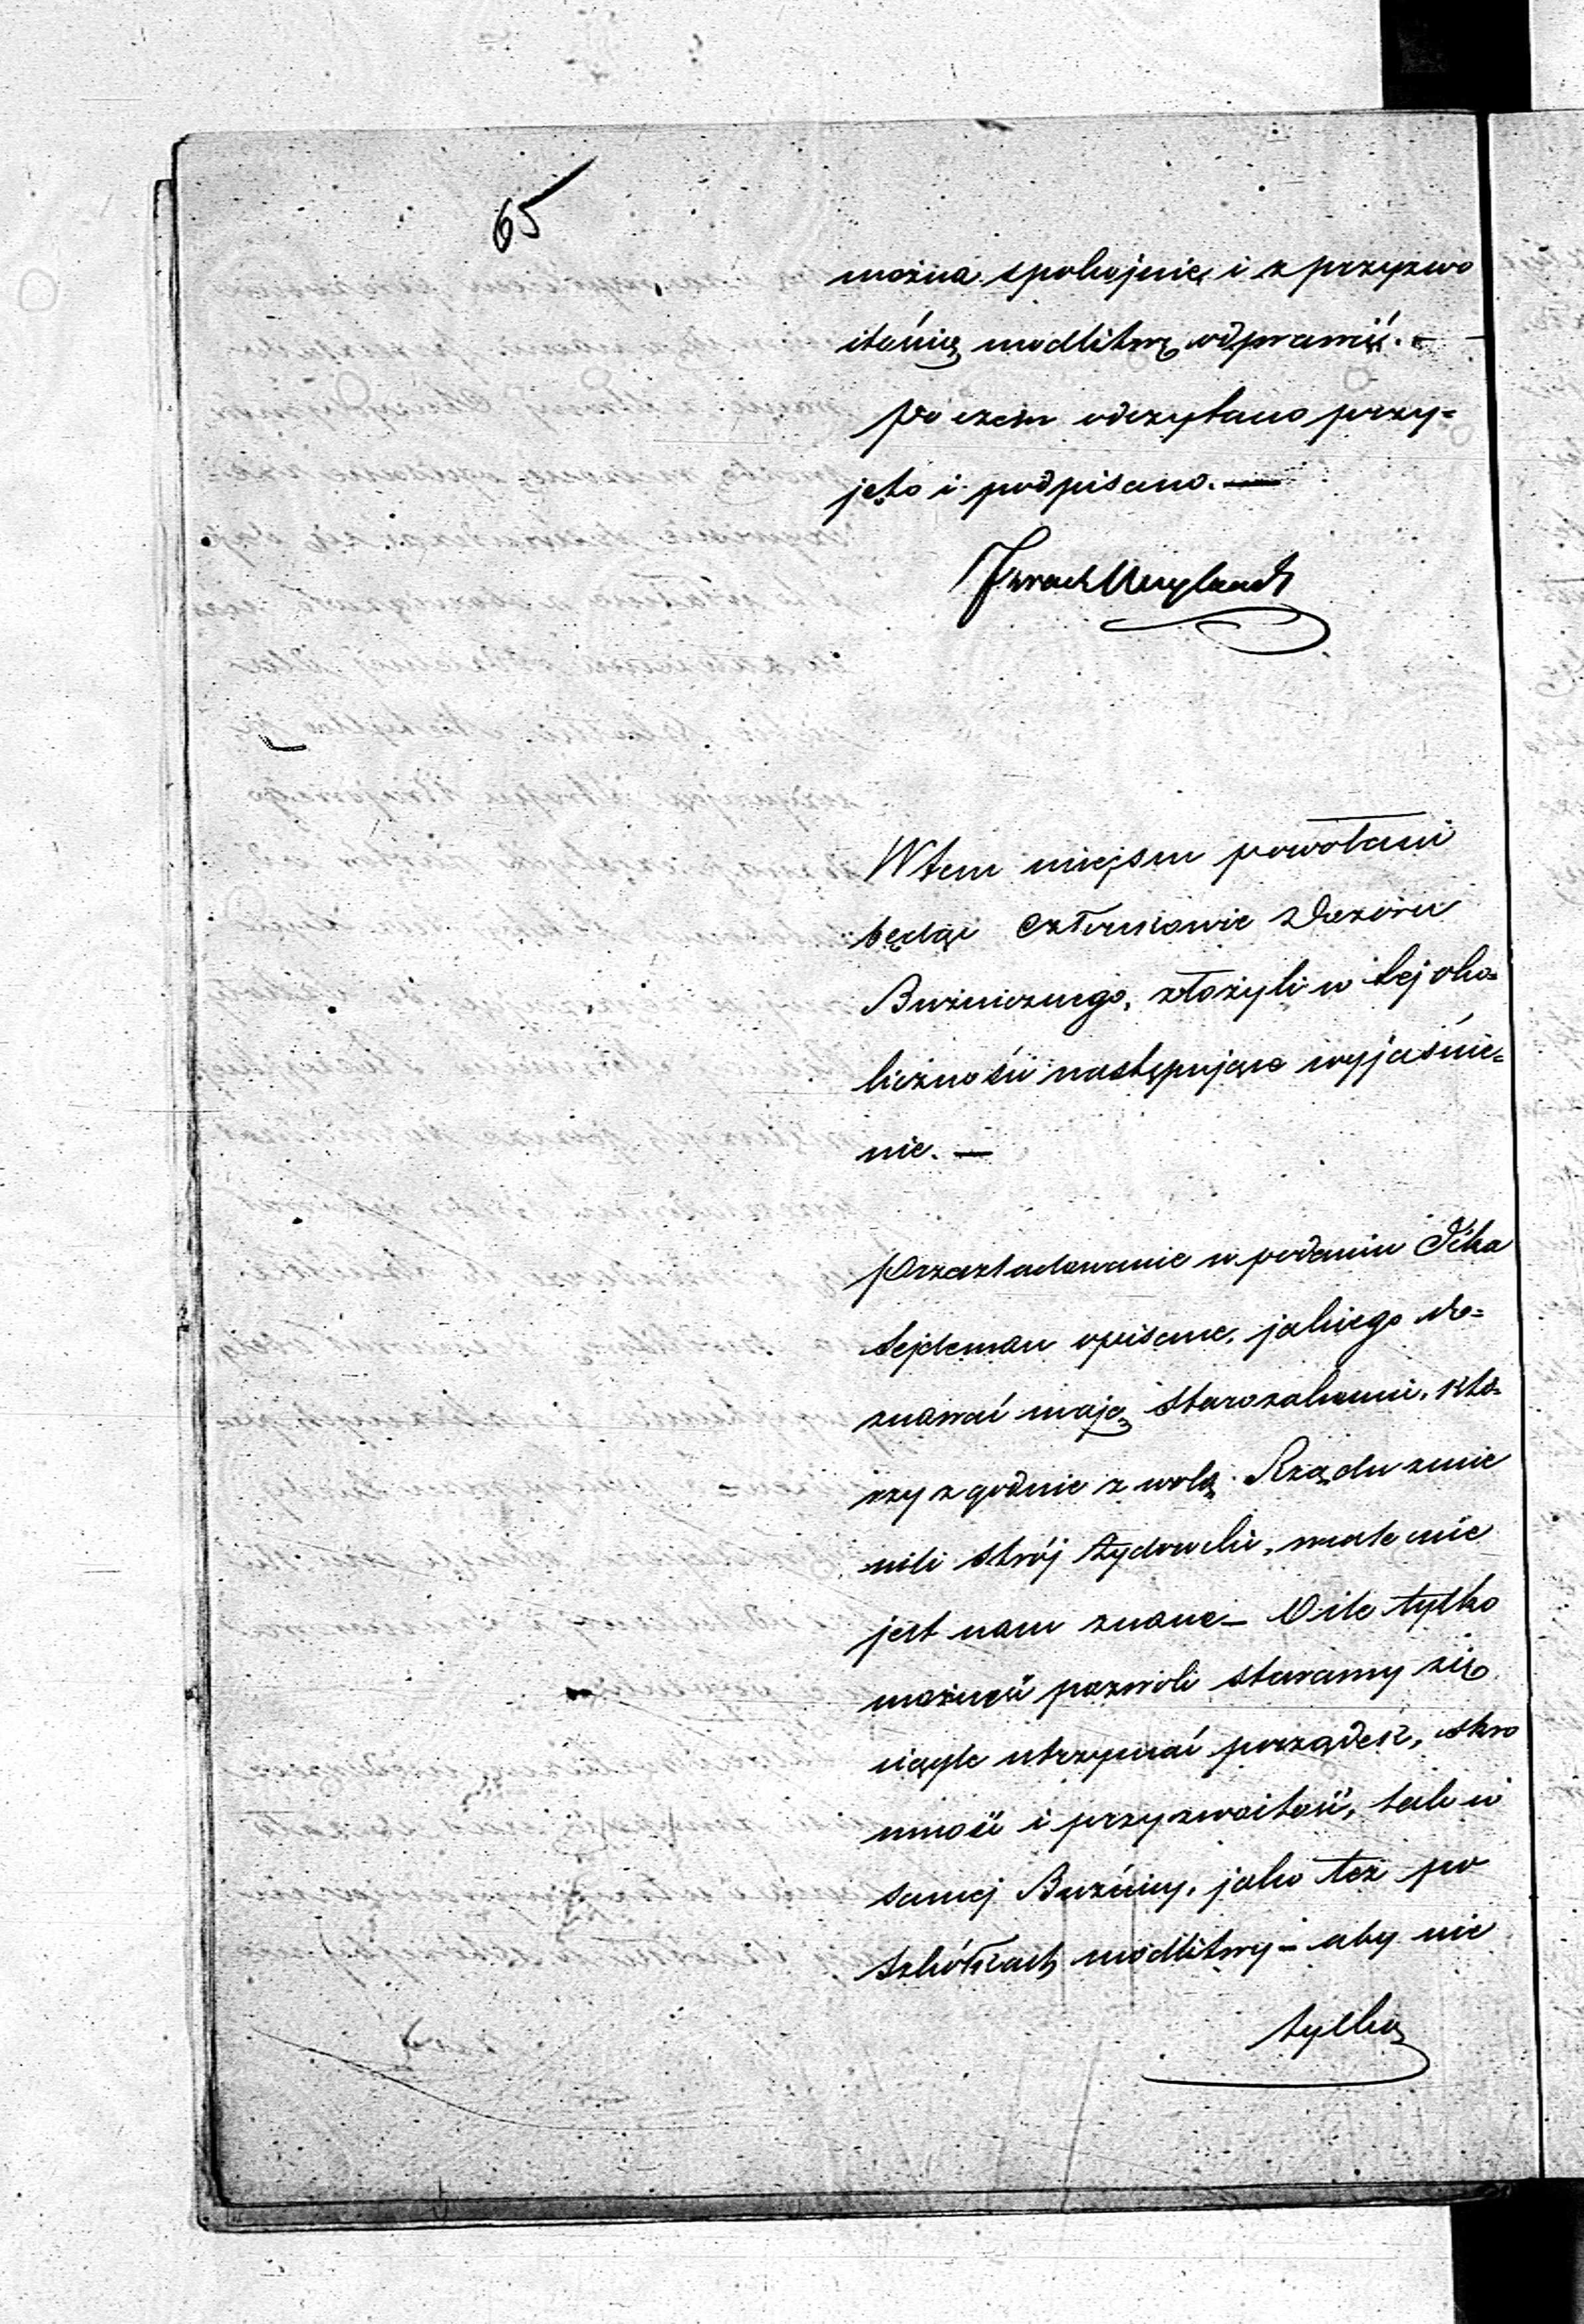 65
można spokojnie i z przyzwo
itością modlitwę odprawić. —
Po czem odczytano przy=
jęto i podpisano. —
W tem miejscu powołani
będąc Członkowie Dozoru
Bużnicznego, złożyli w tej oko=
liczności następujące wyjaśnie=
nie. —
Prześladowanie w podaniu Icka
Sejdeman opisane, jakiego do=
znawać mają Starozakonni, któ=
rzy zgodnie z wolą Rządu zmie
nili strój żydowski, wcale nie
jest nam znane — O ile tylko
możność pozwoli staramy się
ciągle utrzymać porządek, skro
mność i przyzwoitość, tak w
samej Bużnicy, jako też po
szkółkach modlitwy — aby nie
tylko